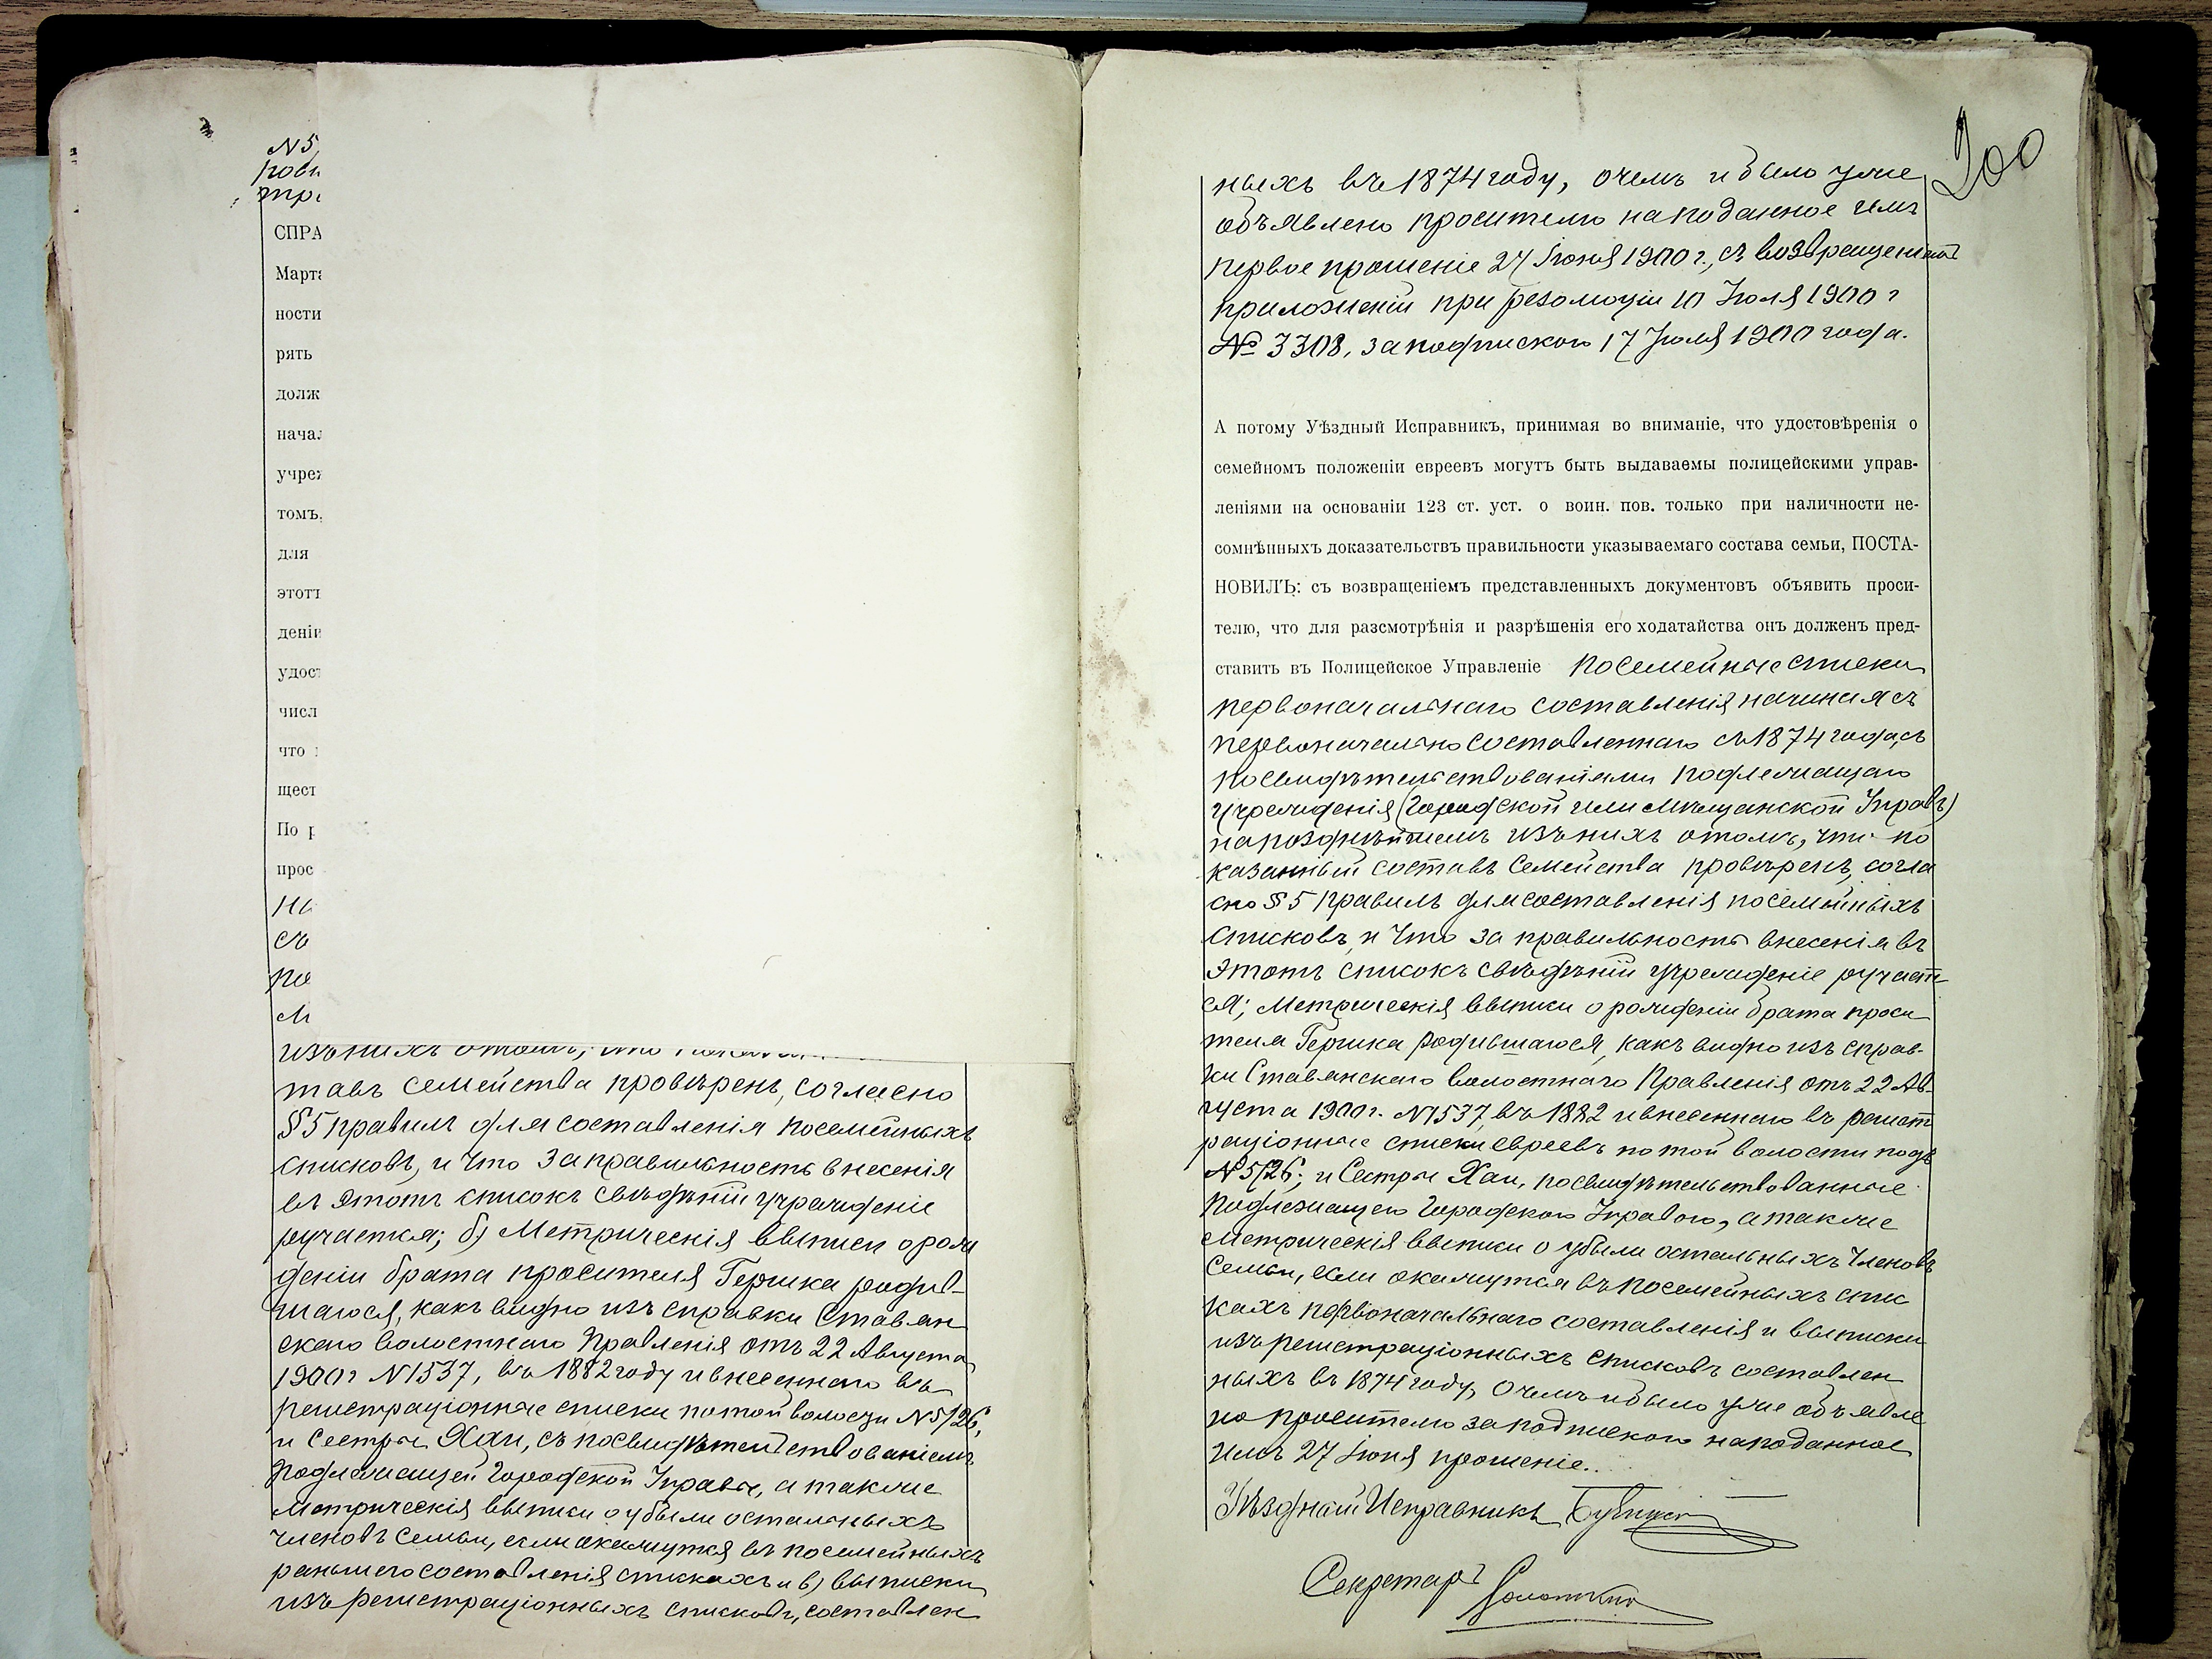 N5
пови
СПРА
Марта
ности
рять
долж
начал
учреж
томъ,
для
этотъ
деніи
удост
числ
что
щест
По р
прос
съ
по
изъ нихъ отомъ, что
тавъ семейства провѣренъ, согласно
§ 5 правилъ для составленія посемейныхъ
списковъ, и что за правильность внесенія
въ этотъ списокъ свѣдѣній учрежденіе
ручается; б) Метрическія выписи о рож
деніи брата просителя Гершка родив-
шагося, какъ видно изъ справки Ставян
скаго волостнаго Правленія отъ 22 Августа
1900 г N 1537, въ 1882 году и внесеннаго въ
регистраціонные списки по той волости N 5/26,
и Сестры Хаи, съ посвидѣтельствованіемъ
подлежащей Городской Управы, а также
метрическія выписи о убыли остальныхъ
членовъ семьи, если окажутся въ посемейныхъ
раньшего составленія спискахъ и в) выписки
изъ регистраціонныхъ списковъ, составлен
200
ныхъ въ 1874 году, очемъ и было уже
объявлено просителю на поданное имъ
первое прошеніе 27 Іюня 1900 г., съ возвращеніемъ
приложеній при резолюціи 10 Іюля 1900 г
№ 3308, за подпискою 17 Іюля 1900 года.
А потому Уѣздный Исправникъ, принимая во вниманіе, что удостовѣренія о
семейномъ положеніи евреевъ могутъ быть выдаваемы полицейскими управ-
леніями на основаніи 123 ст. уст. о воин. пов. только при наличности не-
сомнѣнныхъ доказательствъ правильности указываемаго состава семьи, ПОСТА-
НОВИЛЪ: съ возвращеніемъ представленныхъ документовъ объявить проси-
телю, что для разсмотрѣнія и разрѣшенія его ходатайства онъ долженъ пред-
ставить въ Полицейское Управленіе посемейные списки
первоначальнаго составленія начиная съ
первоначально составленнаго съ 1874 года, съ
посвидѣтельствованіями подлежащаго
учрежденія (Городской или Мѣщанской Управъ)
на позднѣйшемъ изъ нихъ отомъ, что по
казанный составъ семейства провѣренъ, согла
сно § 5 правилъ для составленія посемейныхъ
списковъ, и что за правильность внесенія въ
этотъ списокъ свѣдѣній учрежденіе ручает-
ся; Метрическія выписи о рожденіи брата проси
теля Гершка родившагося, какъ видно изъ справ-
ки Ставянскаго волостнаго Правленія отъ 22 Ав-
густа 1900 г. N 1537, въ 1882 и внесеннаго въ регист
раціонные списки евреевъ по той волости подъ
N 5/26; и Сестры Хаи, посвидѣтельствованные
подлежащею Городскою Управою, а также
метрическія выписи о убыли остальныхъ членовъ
Семьи, если окажутся въ посемейныхъ спис
кахъ первоначальнаго составленія и выписки
изъ регистраціонныхъ списковъ составлен
ныхъ въ 1874 году, очемъ и было уже объявле
но просителю за подпискою на поданное
имъ 27 Іюня прошеніе.
Уѣздный Исправникъ
Секретарь